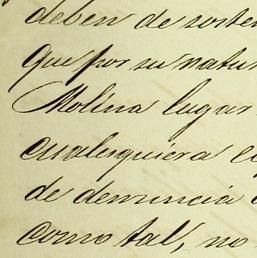 deben de soster
que por su natur
Molina lugar
cualesquiera e
de denuncia
como tal, no